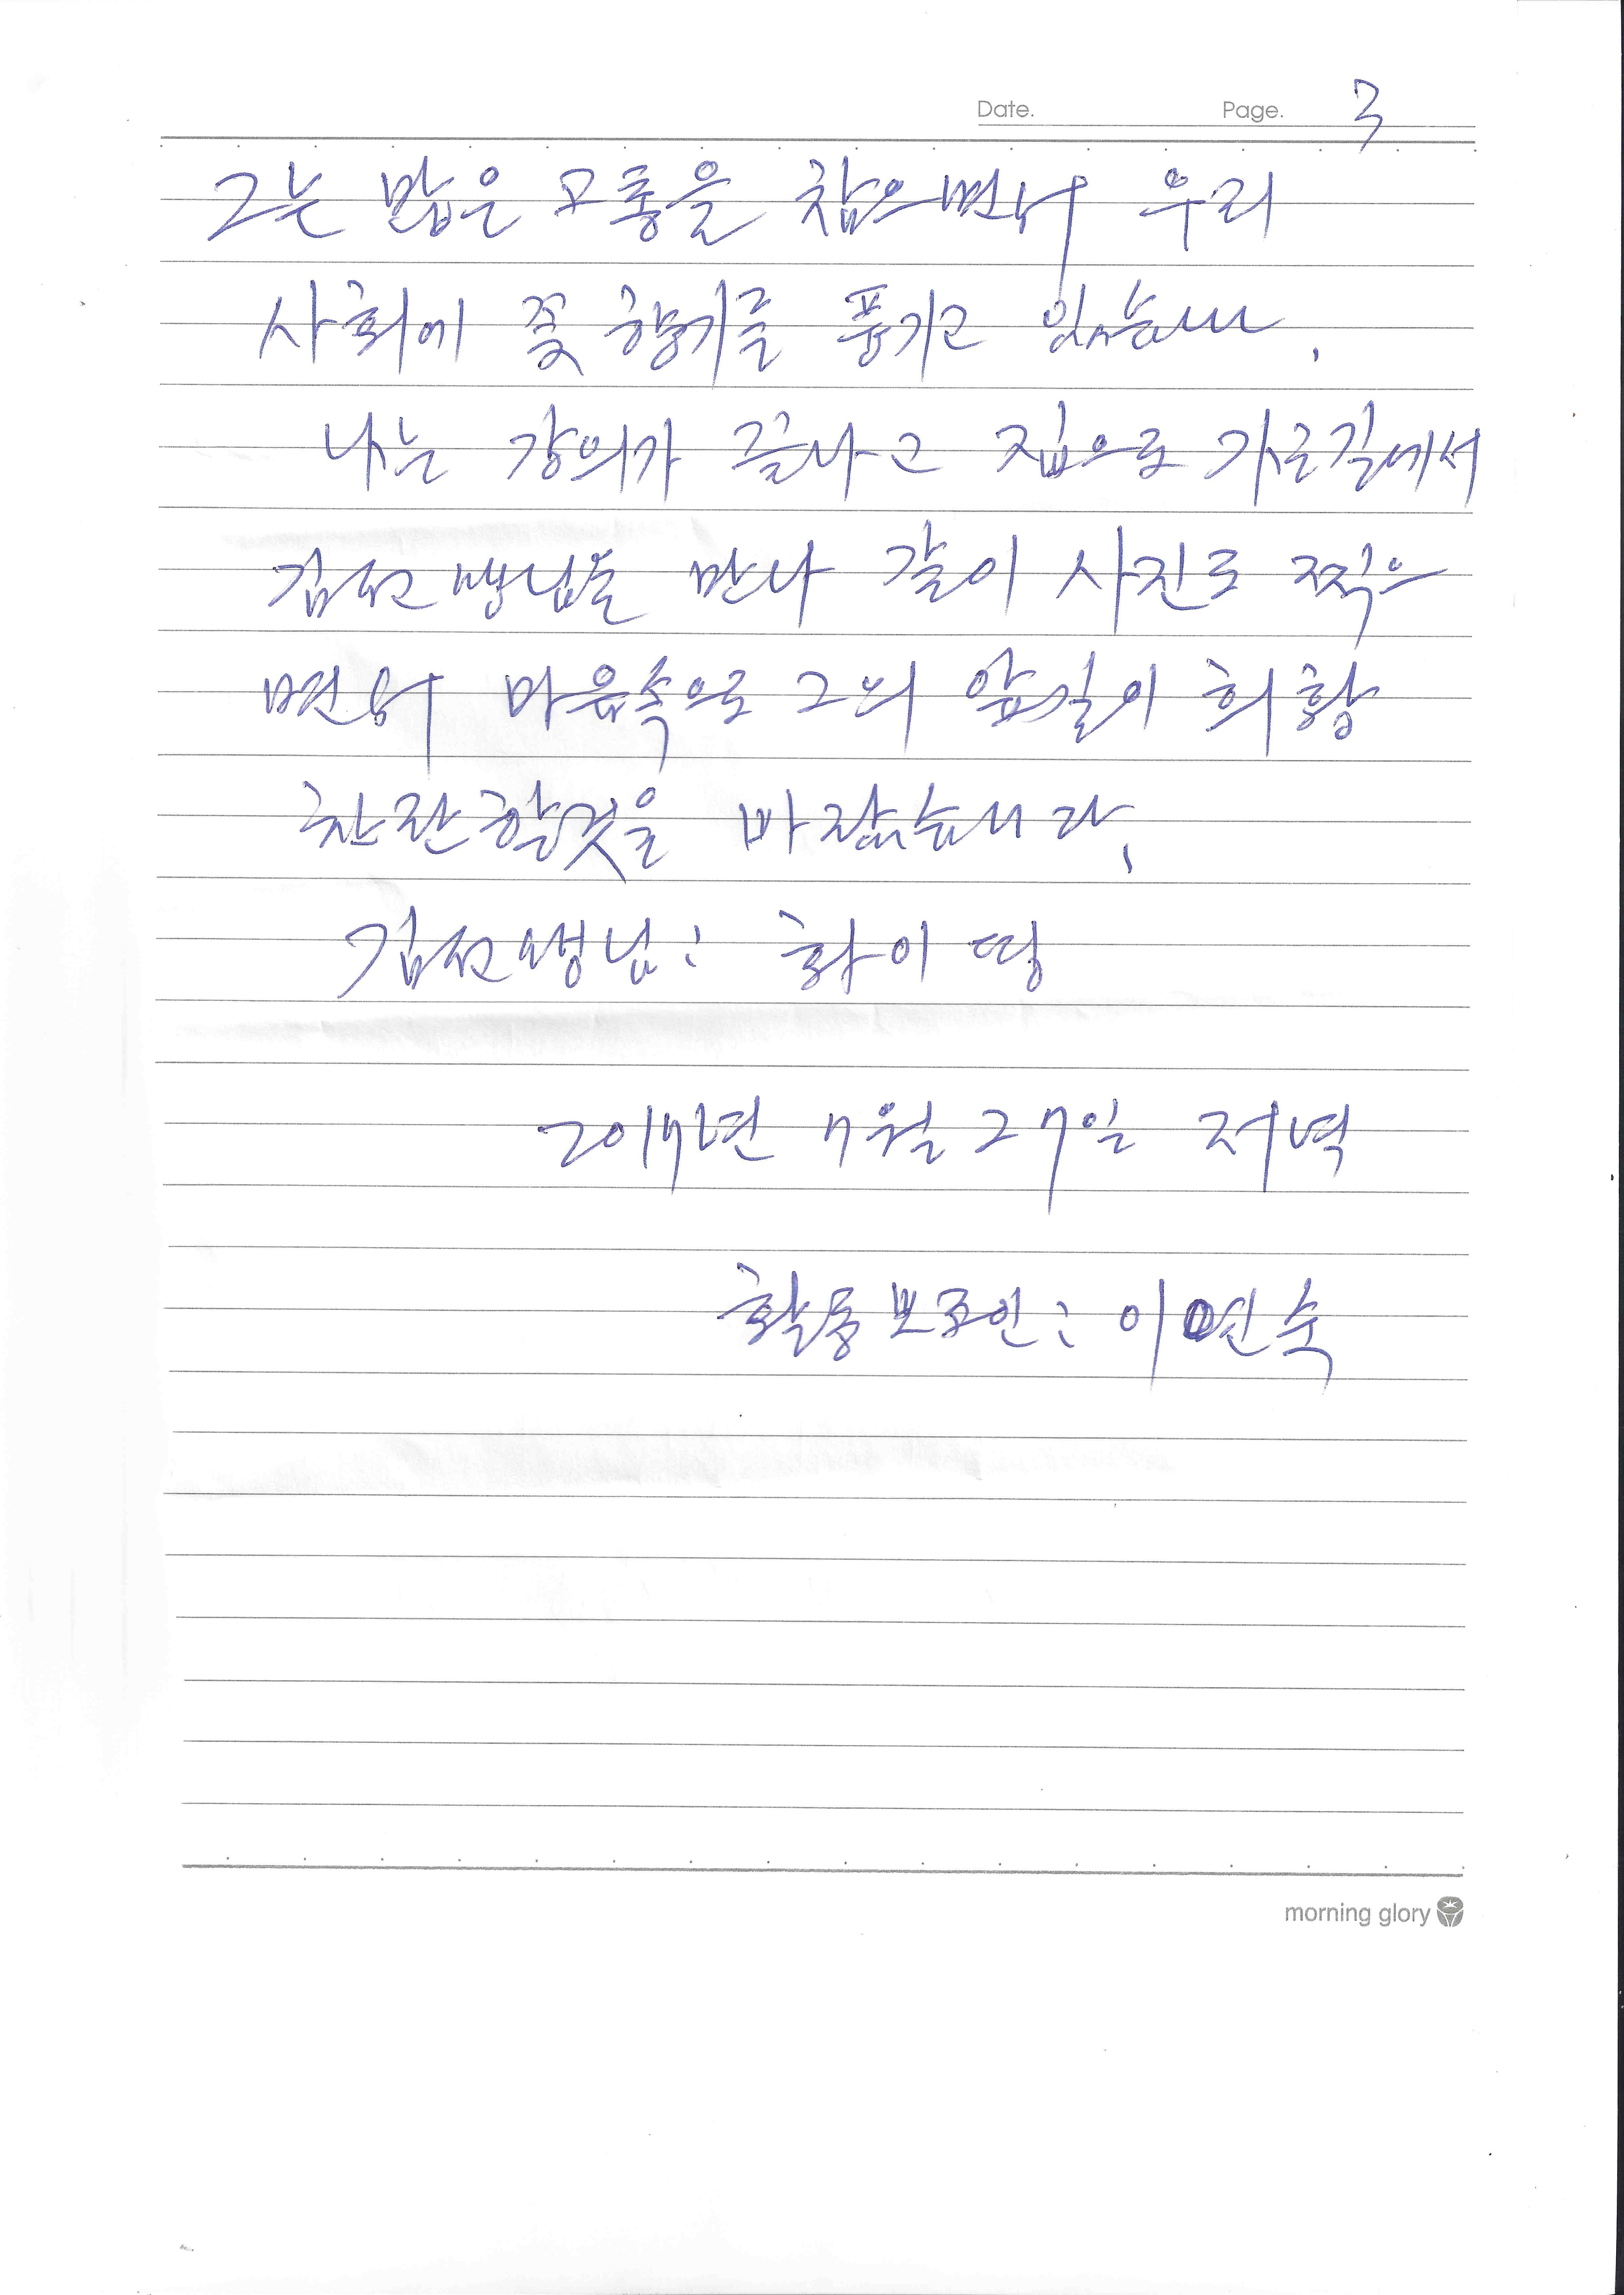 Date. Page. 3
그는 많은 고통을 참으면서 우리
사회에 꽃 향기를 풍기고 있습니다.
나는 강의가 끝나고 집으로 가는길에서
김선생님을 만나 같이 사진도 찍으
면서 마음속으로 그의 앞길이 휘황
찬란할것을 바랐습니다.
김선생님: 화이띵
2017년 7월 27일 저녁
활동보조인: 이연숙
morning glory